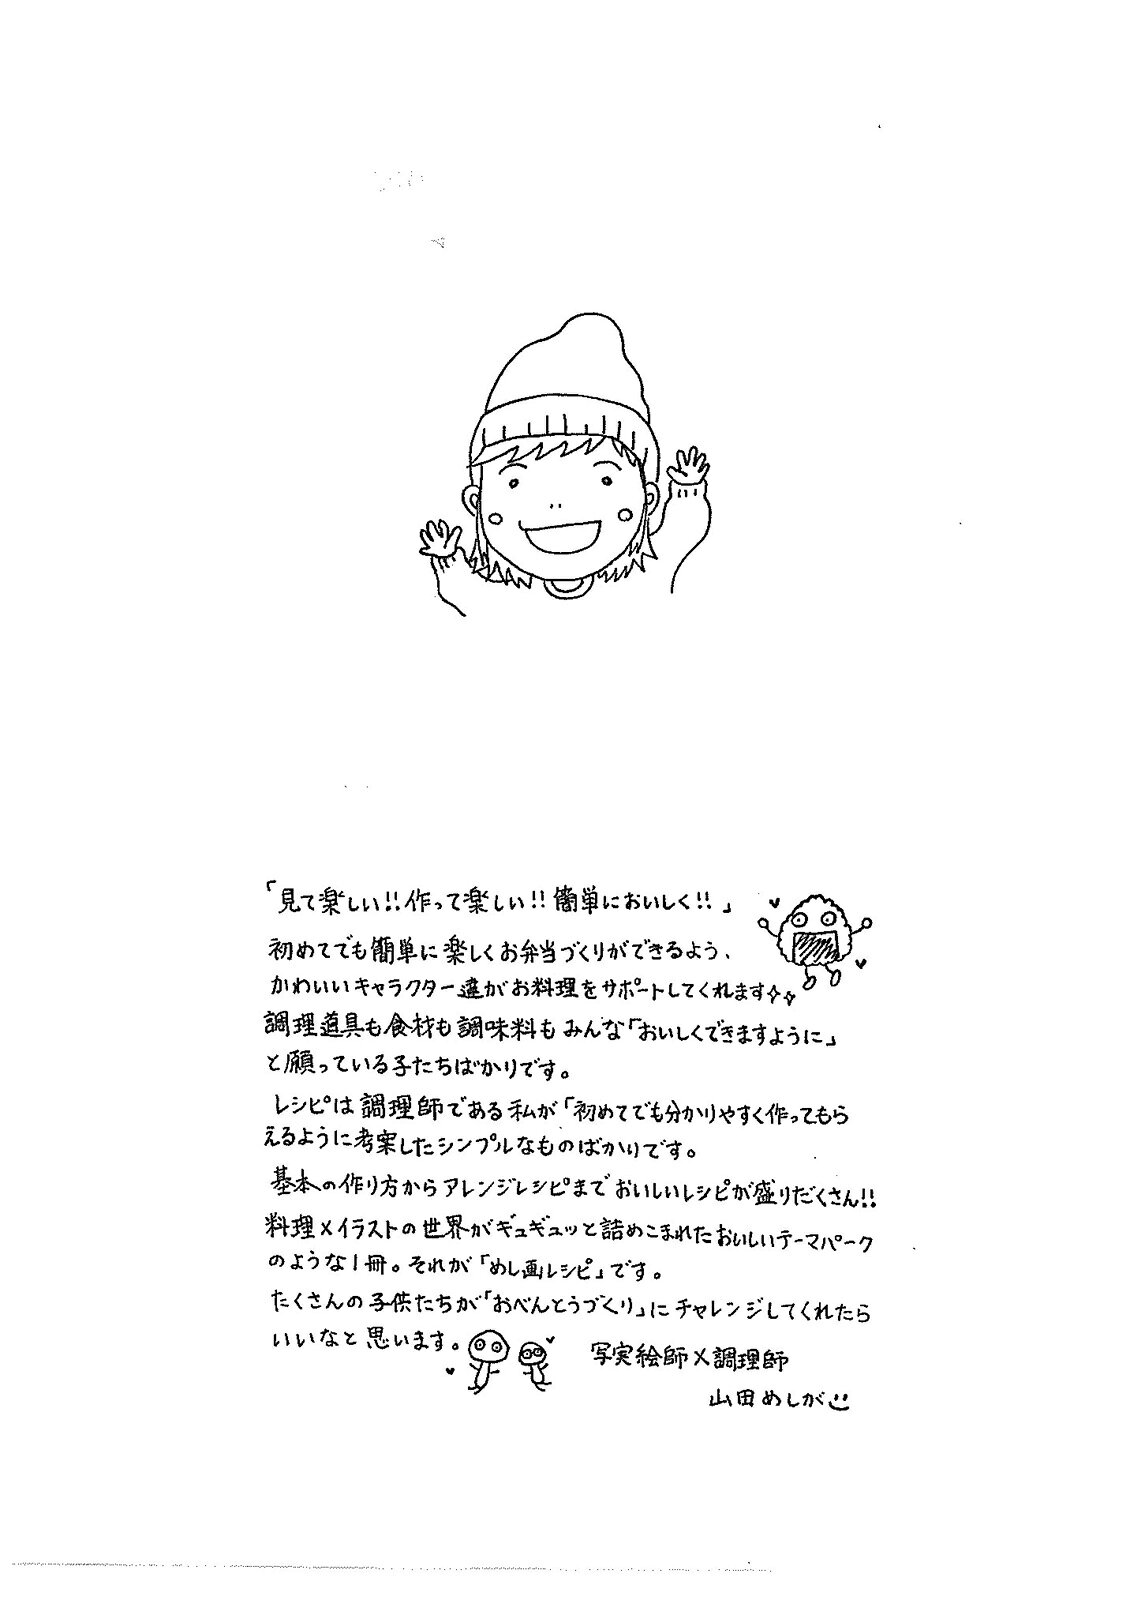 「見て楽しい!!作って楽しい!!簡単においしく!!」
初めてでも簡単に楽しくお弁当づくりができるよう、
かわいいキャラクター達がお料理をサポートしてくれます✧✧
調理道具も食材も調味料もみんな「おいしくできますように」
と願っている子たちばかりです。
レシピは調理師である私が「初めてでも分かりやすく作ってもら
えるように考案したシンプルなものばかりです。
基本の作り方からアレンジレシピまでおいしいレシピが盛りだくさん!!
料理×イラストの世界がギュギュッと詰めこまれたおいしいテーマパーク
のような1冊。それが「めし画レシピ」です。
たくさんの子供たちが「おべんとうづくり」にチャレンジしてくれたら
いいなと思います。
写実絵師×調理師
山田めしが